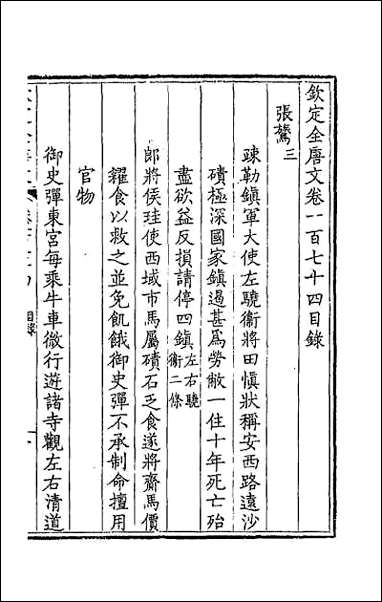 欽定全唐文卷一百七十四目錄
張鷟三
疎勒鎮軍大使左驍衞將田慎狀稱安西路遠沙
磧極深國家鎮遏甚爲勞敝一住十年死亡殆
盡欲益反損請停四鎮左右驍衞二條
郎將侯珪使西域市馬屬磧石乏食遂將齎馬價
糴食以救之並免飢餓御史彈不承制命擅用
官物
御史彈東宮每乘牛車微行遊諸寺觀左右清道
目錄